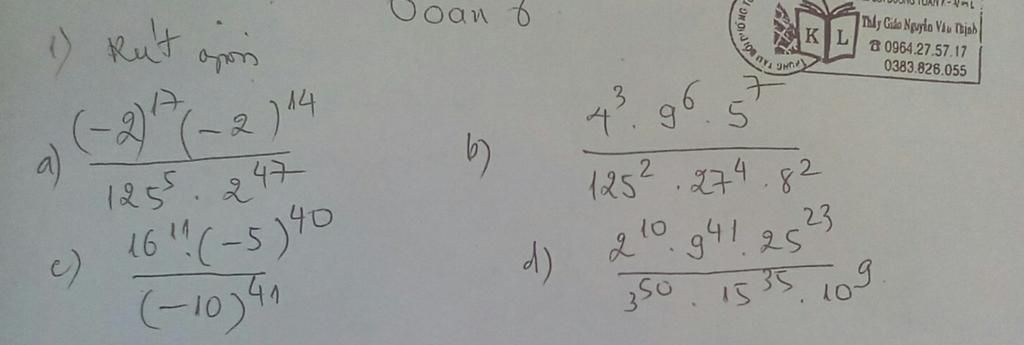 Toán 6
1) Rút gọn
a) (-2)^17 (-2)^14 / 125^5 . 2^47
b) 4^3 . 9^6 . 5^7 / 125^2 . 27^4 . 8^2
c) 16^11 . (-5)^40 / (-10)^41
d) 2^10 . 9^41 . 25^23 / 3^50 . 15^35 . 10^9
K L
Thầy Giáo Nguyễn Văn Thịnh
☎ 0964.27.57.17
0383.826.055